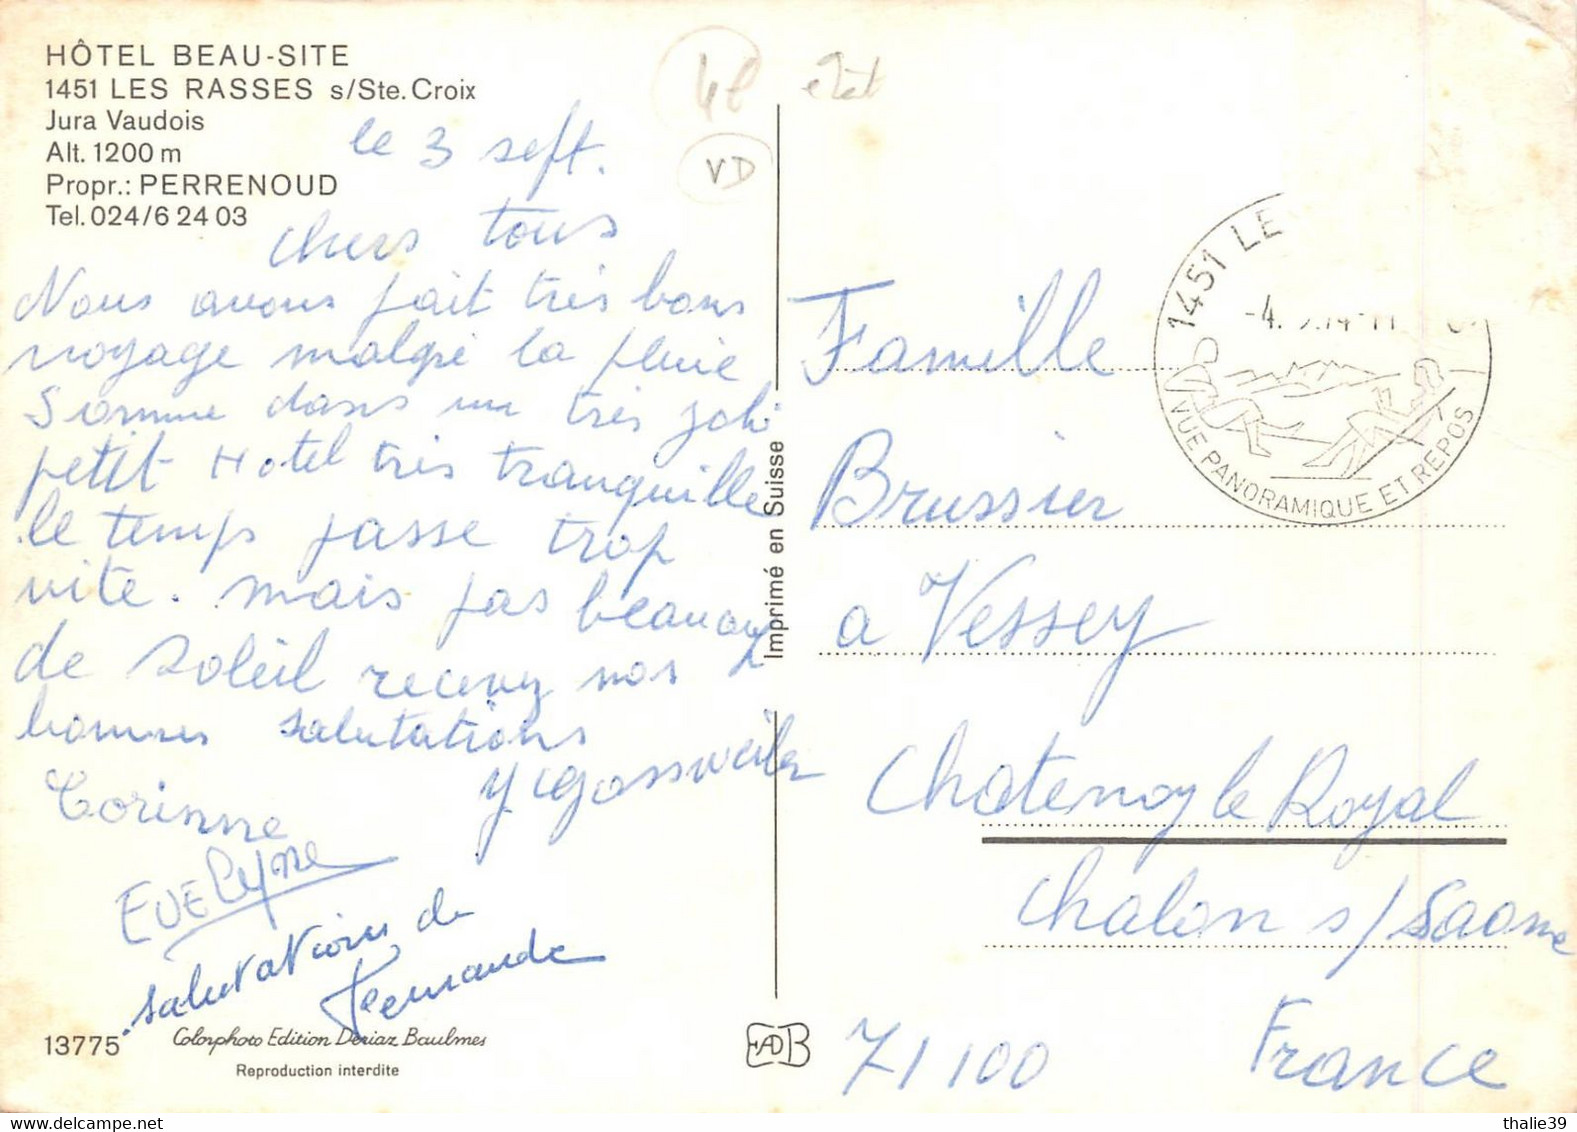 HÔTEL BEAU-SITE
1451 LES RASSES s/Ste. Croix
Jura Vaudois
Alt. 1200 m
Propr.: PERRENOUD
Tel. 024/6 24 03
le 3 sept.
chers tous
Nous avons fait très bons
voyage malgré la pluie
Somme dans un très joli
petit Hotel très tranquille
le temps passe trop
vite. mais pas beaucoup
de soleil recevez nos
bonnes salutations
Y Gossweiler
Corinne
EVELyne
salutations de
Fernande
13775
Colorphoto Edition Deriaz Baulmes
Reproduction interdite
VD
Imprimé en Suisse
EADB
1451 LE
-4. 9.74-11
VUE PANORAMIQUE ET REPOS
Famille
Brussier
a Vessey
Chatenoy le Royal
Chalon s/Saone
71100 France
thalie39